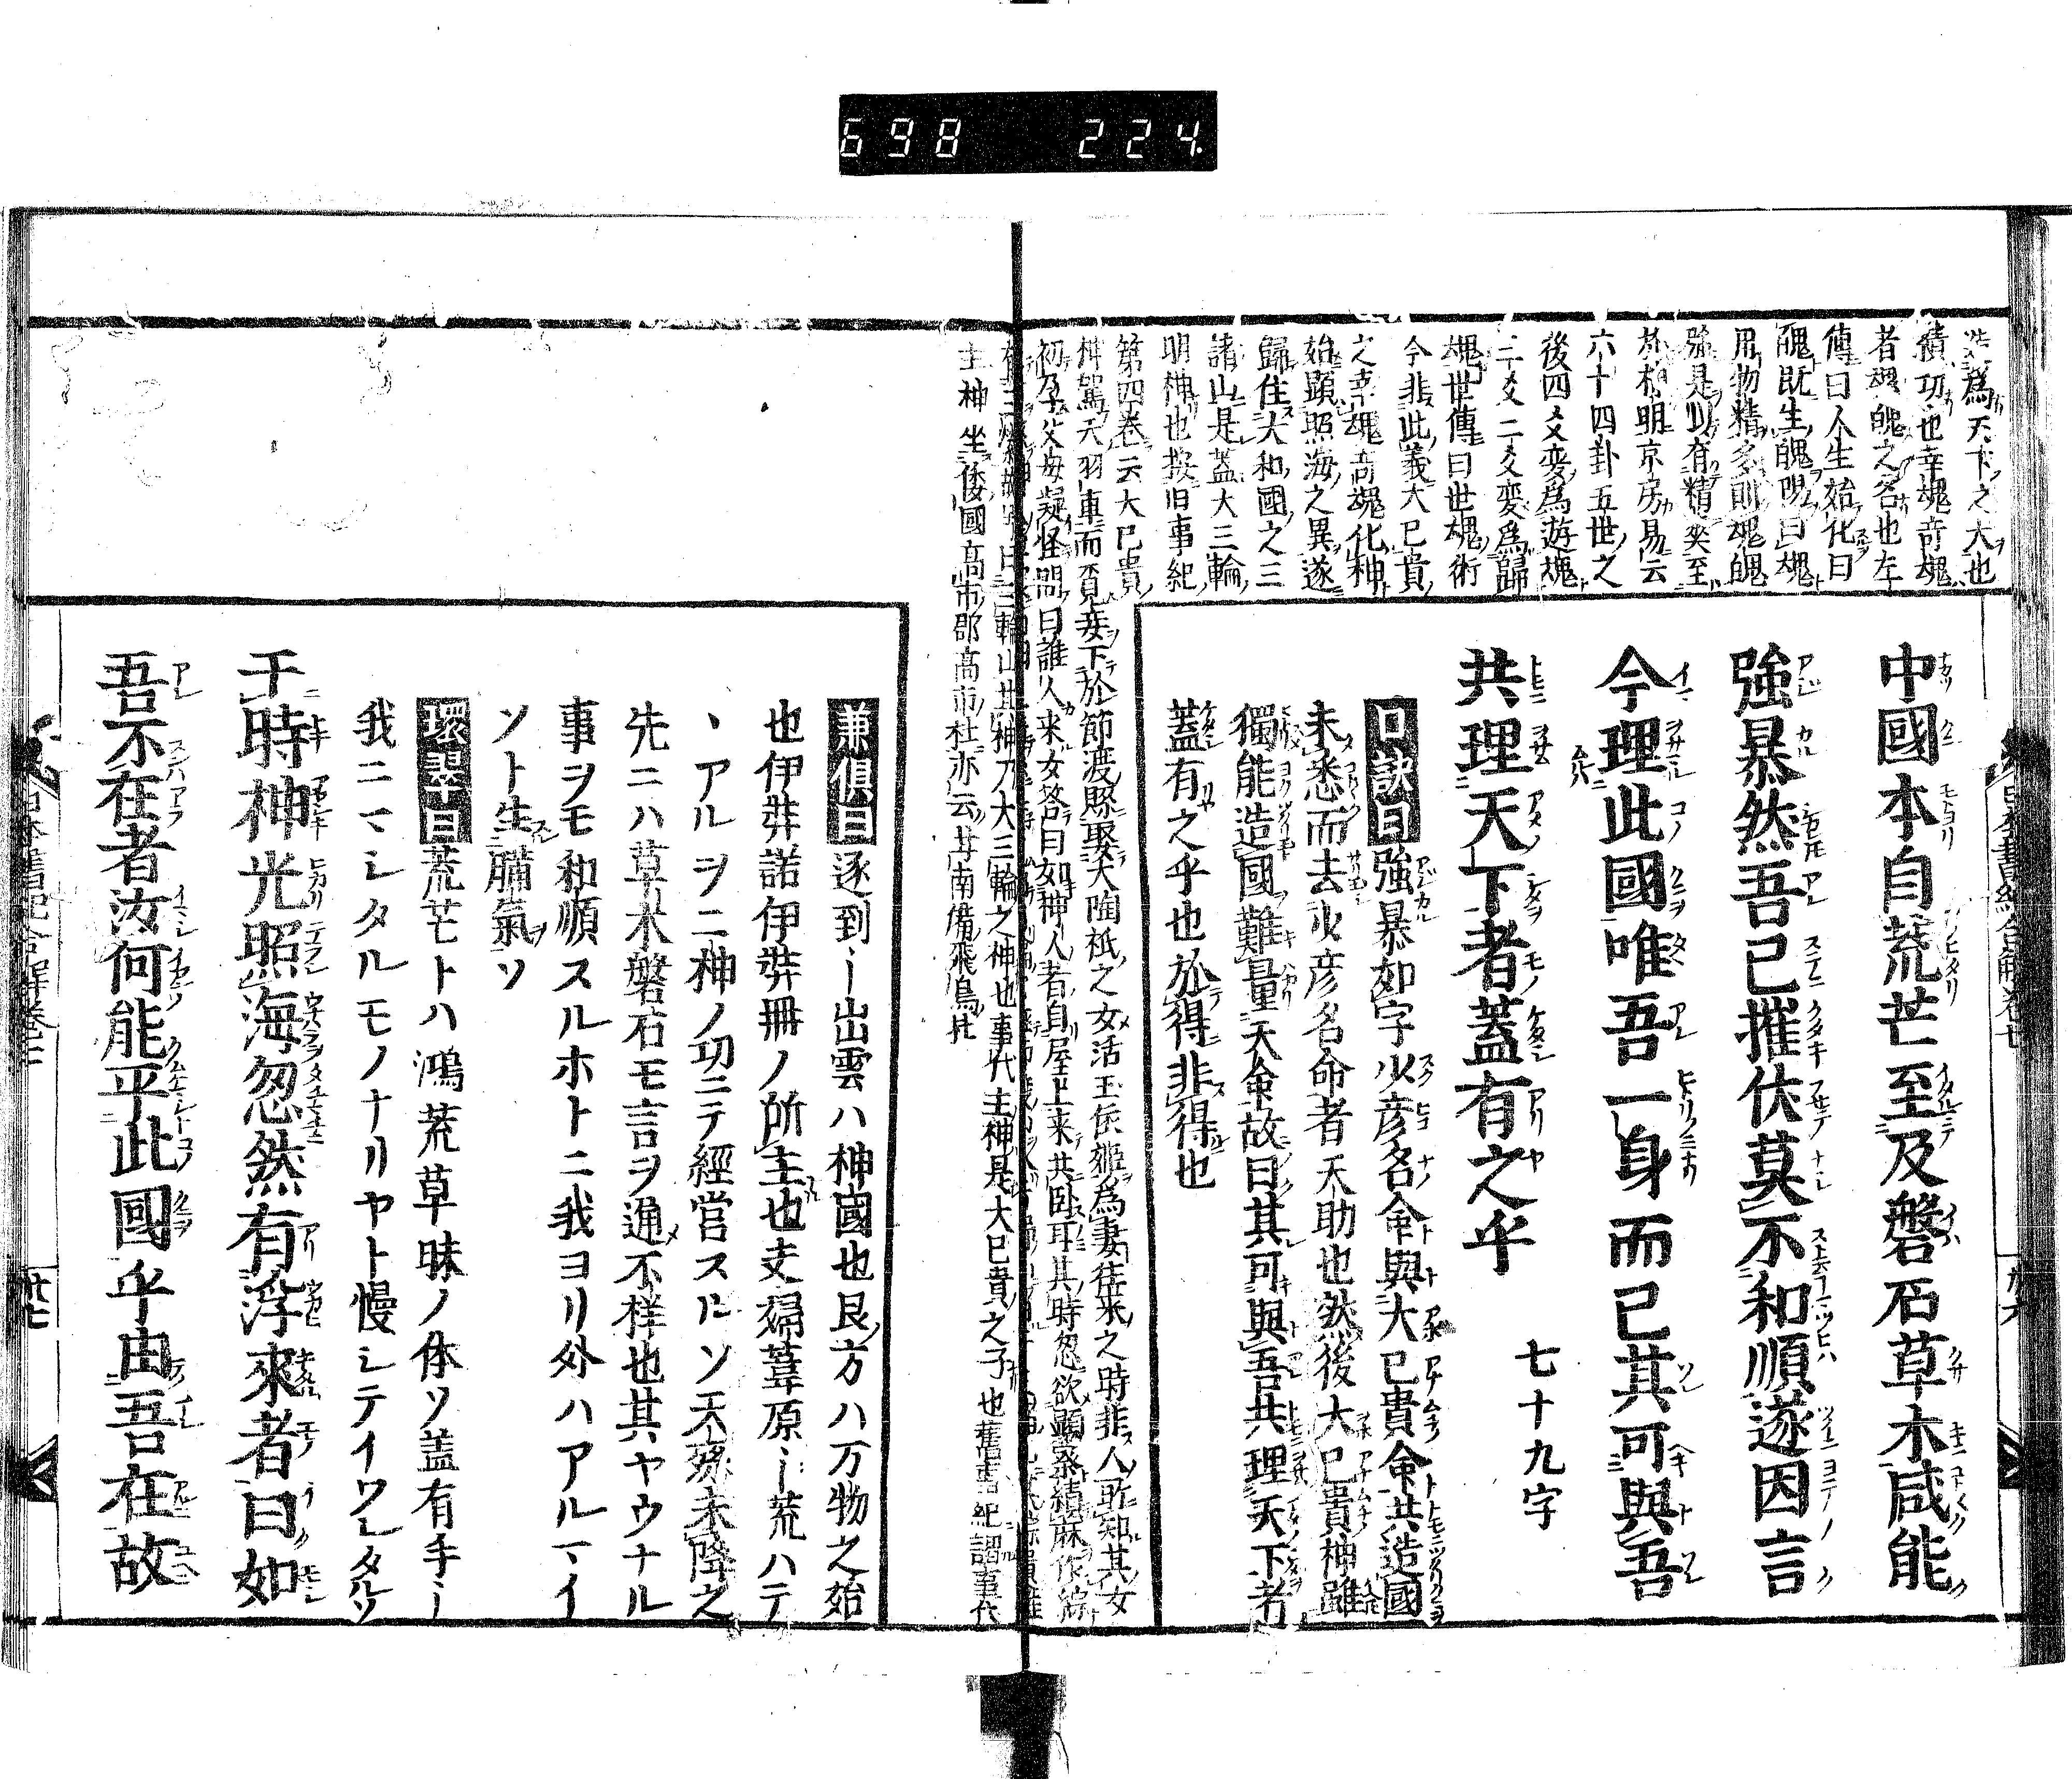 698 224
造爲天下之大也
積功也幸魂奇魂
者魂魄之名也左
傳曰人生始化曰
魄既生魄陽曰魂
用物精多則魂魄
強是以有精爽至
於神明京房易云
六十四卦五世之
後四爻変為遊魂
二爻二爻変爲歸
魂世傳曰世魂術
今非此義大已貴
之幸魂奇魂化神
始顕照海之異遂
歸住大和國之三
諸山是蓋大三輪
明神也按旧事紀
第四卷云大已貴
神駕天羽車而覓妾下於節渡縣娶大陶祇之女活玉依姬為妻往来之時非人所知其女
初孕父母疑怪問曰誰人来女答曰如神人者自屋上来共卧耳其時忽欲顕祭績麻作綜
中國本自荒芒至及磐石草木咸能
強暴然吾已摧伏莫不和順遂因言
今理此國唯吾一身而已其可與吾
共理天下者蓋有之乎 七十九字
口訣曰強暴如字少彦名命與大已貴命共造國
未悉而去少彦名命者天助也然後大已貴神雖
獨能造國難量天命故曰其可與吾共理天下者
蓋有之乎也於得非得也
日三輪山其神乃大三輪之神也事代主神是大已貴之子也舊事紀謂事代
主神坐倭國高市郡高市社亦云甘南備飛鳥社
兼倶曰逐到〡出雲ハ神國也艮方ハ万物之始
也伊弉諾伊弉冊ノ所主也夫婦葦原〡荒ハテ
丶アルヲ二神ノ功ニテ經営スルソ天孫未降之
先ニハ草木磐石モ言ヲ通不样也其ヤウナル
事ヲモ和順スルホトニ我ヨリ外ハアルマイ
ソト生𦠄氣ソ
環翠曰荒芒トハ鴻荒草昧ノ体ソ蓋有乎〡
我ニマシタルモノナリヤト慢シテイワレタルソ
于時神光照海忽然有浮來者曰如
吾不在者汝何能平此國乎由吾在故
日本書紀合解卷七
廿六
廿七